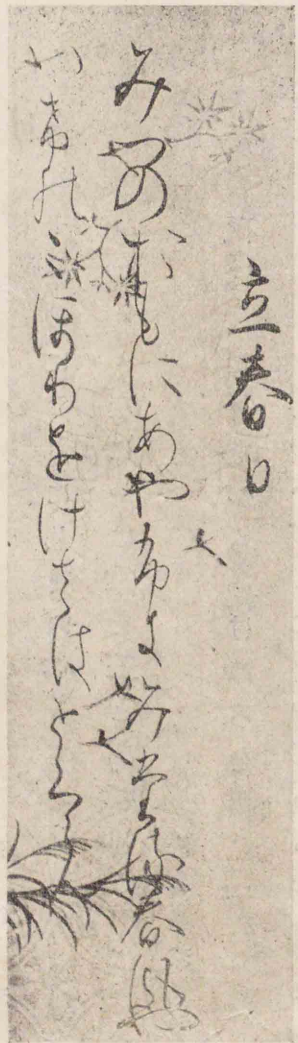 立春日
みつのおもにあやふきみたる春風や
いけのこほりをけふはとくらん